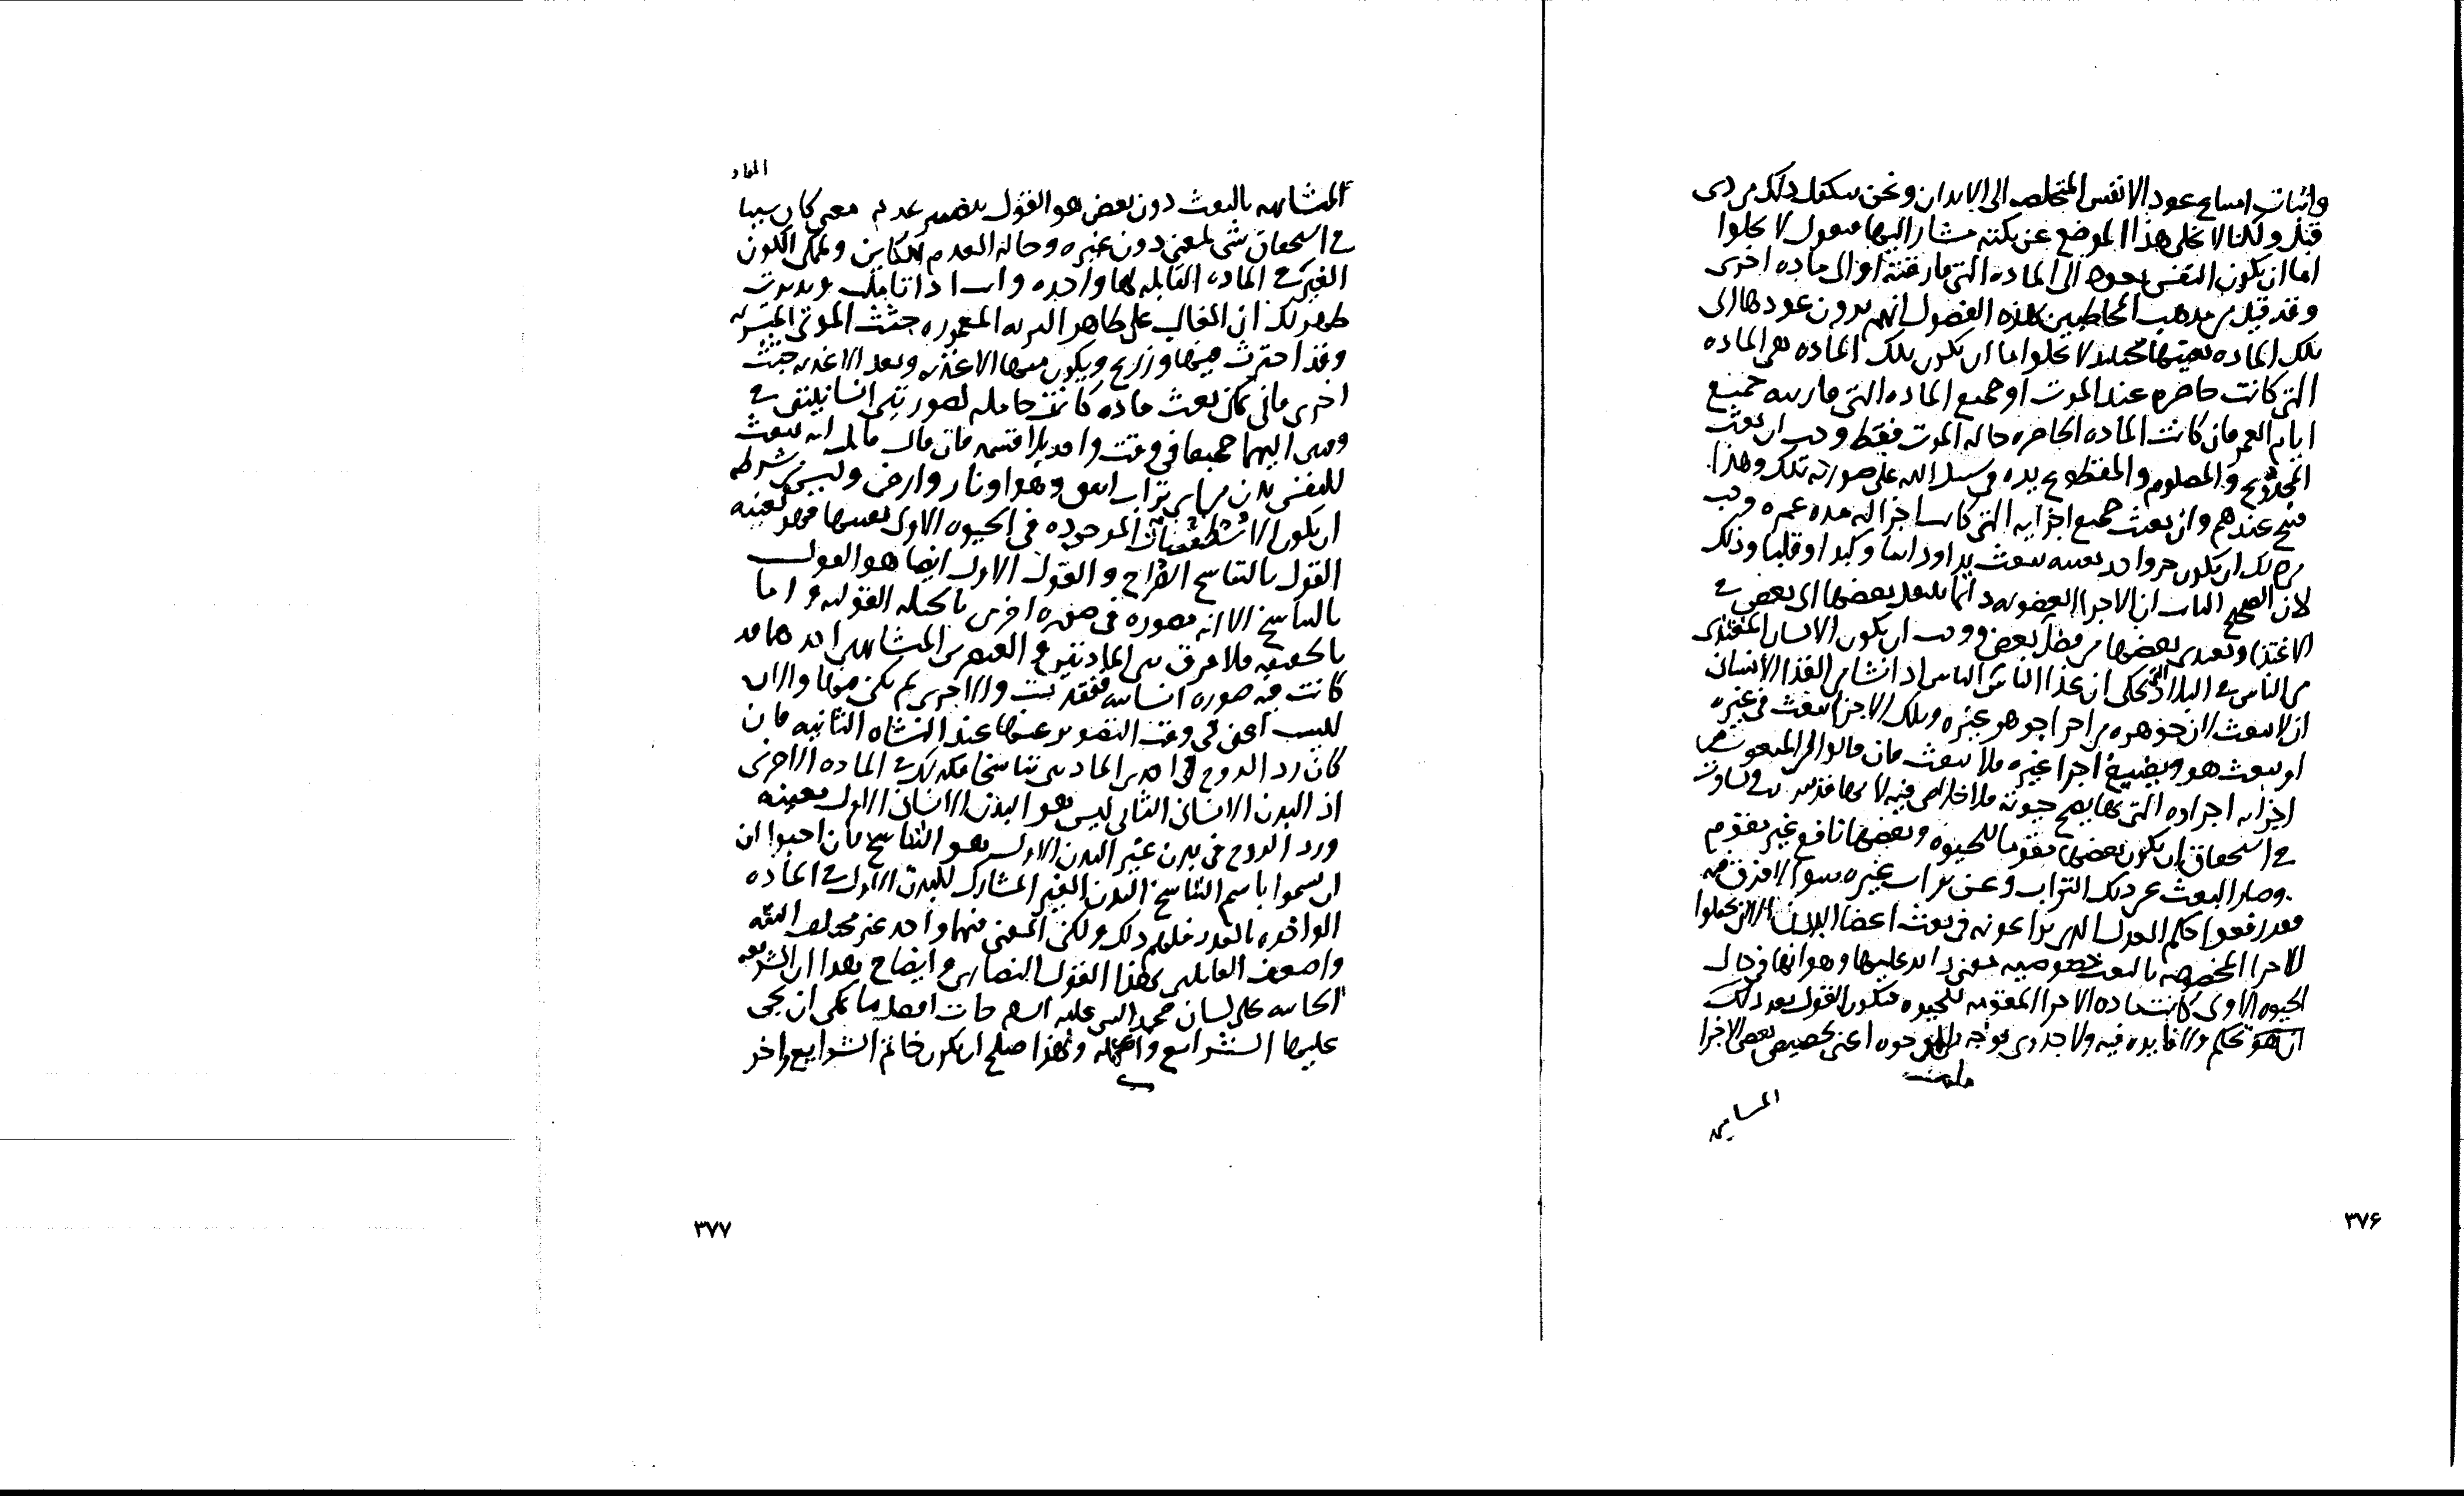 واثبات امتناع عود الانفس المتخلصه الى الابدان ونحن سنكفل ذلك من ذى
قبل ولكنا لا نخلى هذا الموضع عن نكتة مشار اليها فنقول لا يخلوا
اما ان يكون النفس يعود الى الماده التى فارقتها او الى ماده اخرى
وقد قيل من مذهب المخاطبين بهذه الفصول انهم يرون عودها الى
تلك الماده بعينها فحينئذ لا يخلوا اما ان يكون تلك الماده هى الماده
التى كانت حاضره عند الموت او جميع الماده التى قارنته جميع
ايام العمر فان كانت الماده الحاضره حالة الموت فقط وجب ان يبعث
المجدوع والمصلوم والمقطوع يده فى سبيل الله على صورته تلك وهذا
قبيح عندهم وان بعث جميع اجزايه التى كانت اجزا له مدة عمره وجب
من ذلك ان يكون جزو واحد بعينه يبعث يدا وراسا وكبدا وقلبا وذلك
لان الصحيح الثابت ان الاجزا العضويه دائما ينتقل بعضها الى بعض فى
الاغتذا ويغتذى بعضها من فضل بعض ووجب ان يكون الانسان المغتذى
من الناس فى البلاد التى يحكى ان غذا الناس الناس اذا نشا من الغذا الانسانى
ان لا يبعث لان جوهره من اجزا جوهر غيره وتلك الاجزا تبعث فى غيره
او يبعث هو ويضيع اجزا غيره فلا يبعث فان قالوا ان المبعوث من
اجزايه اجزاوه التى بها يصح حيوته فلا خلاص فيه لانها قد تتساوى
فى استحقاق ان يكون بعضها مقوما للحيوه وبعضها نافع غير مقوم
وصار البعث عن ذلك التراب وعن تراب غيره سوا لا فرق فيه
فقد رفعوا حكم العدل الذى يراعونه فى بعث اعضا البدن الا ان يجعلوا
للاجزا المخصوصه بالبعث خصوصيه معنى زايد عليها وهو انها فى حال
الحيوه الاولى كانت ماده الاجزا المقومه للحيوه فيكون القول بعد ذلك
ان هو تحكم ولا فايده فيه ولا جدوى بوجه من الوجوه اعنى تخصيص بعض الاجزا
المتشابهه
٣٧۶
المعاد
المتشابهه بالبعث دون بعض هو القول بتصيير عدم معنى كان سببا
فى استحقاق شى لمعنى دون غيره وحالة العدم للكاين وممكن الكون
الغير فى الماده القابله لها واحده وانت اذا تاملت وتدبرت
ظهر لك ان الغالب على ظاهر التربه المعموره جثث الموتى المتربه
وقد احترث فيها وزرع ويكون منها الاغذيه ويعد الاغذيه جثث
اخرى فانى يمكن بعث ماده كانت حامله لصورتين انسانيتين فى
وقتين اليهما جميعا فى وقت واحد بلا قسمه فان قال قايل انه يبعث
للنفس بدن من اى تراب اتفق وهوا ونار وارض وليس من شرطه
ان يكون الاسطقسات الموجوده فى الحيوه الاولى بعينها فهو بعينه
القول بالتناسخ الصراح والقول الاول ايضا هو القول
بالتناسخ الا انه مصوره فى صوره اخرى بالحيله القوليه واما
بالحقيقه فلا فرق بين المادتين والعنصرين المتشابهين احدهما قد
كانت فيه صوره انسانيه ففقدت والاخرى لم يكن فيها والان
ليست اعنى فى وقت التصوير عنهما عند النشاه الثانيه فان
كان رد الروح فى احدى المادتين تناسخا فكذلك فى الماده الاخرى
اذ البدن الانسانى الثانى ليس هو البدن الانسانى الاول بعينه
ورد الروح فى بدن غير البدن الاول هو التناسخ فان احبوا ان
ان يسموا باسم التناسخ البدن الغير المشارك للبدن الاول فى الماده
الواحده بالعدد فلهم ذلك ولكن المعنى فيهما واحد غير مختلف البته
واضعف القايلين بهذا القول النصارى وايضاح هذا ان الشريعه
الجاييه على لسان محمد النبى عليه السلم جات افضل ما يمكن ان يجى
عليها الشرايع واكمله ولهذا صلح ان يكون خاتم الشرايع واخر
٣٧٧